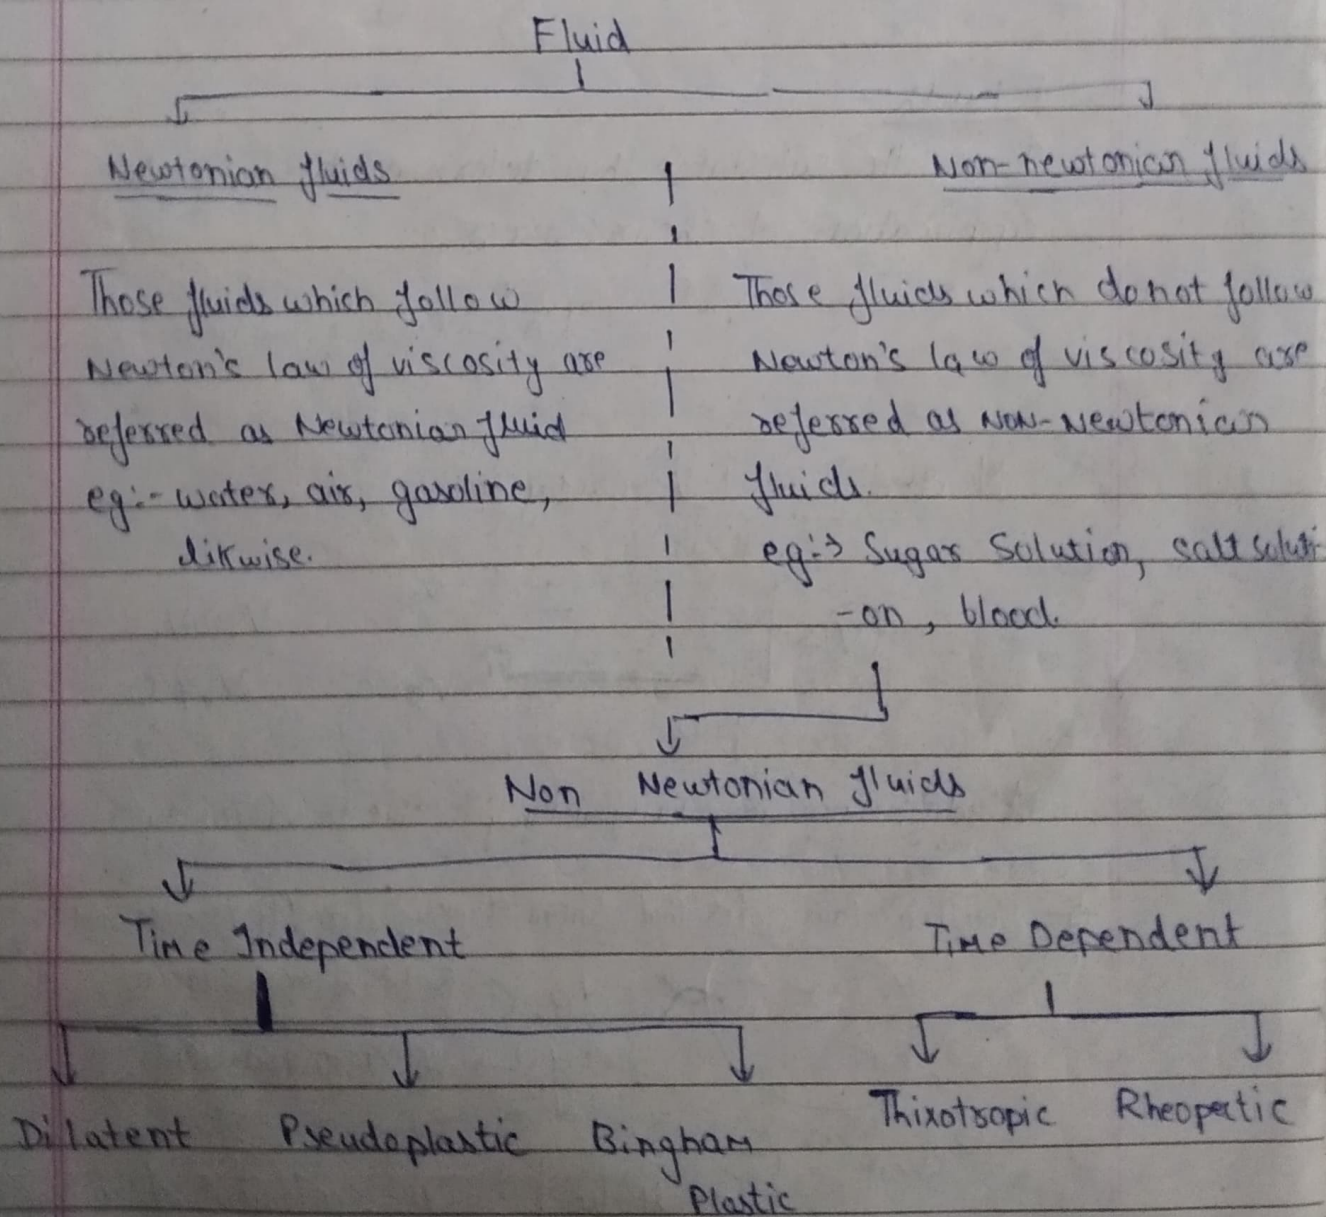 Fluid
Newtonian fluids
Non-newtonian fluids
Those fluids which follow
Newton's law of viscosity are
referred as Newtonian fluid
eg:- water, air, gasoline,
likwise.
Those fluids which do not follow
Newton's law of viscosity are
referred as Non-Newtonian
fluids.
eg:→ Sugar Solution, salt soluti
-on, blood.
Non Newtonian fluids
Time Independent
Time Dependent
Dilatent
Pseudoplastic
Bingham
Plastic
Thixotropic
Rheopectic